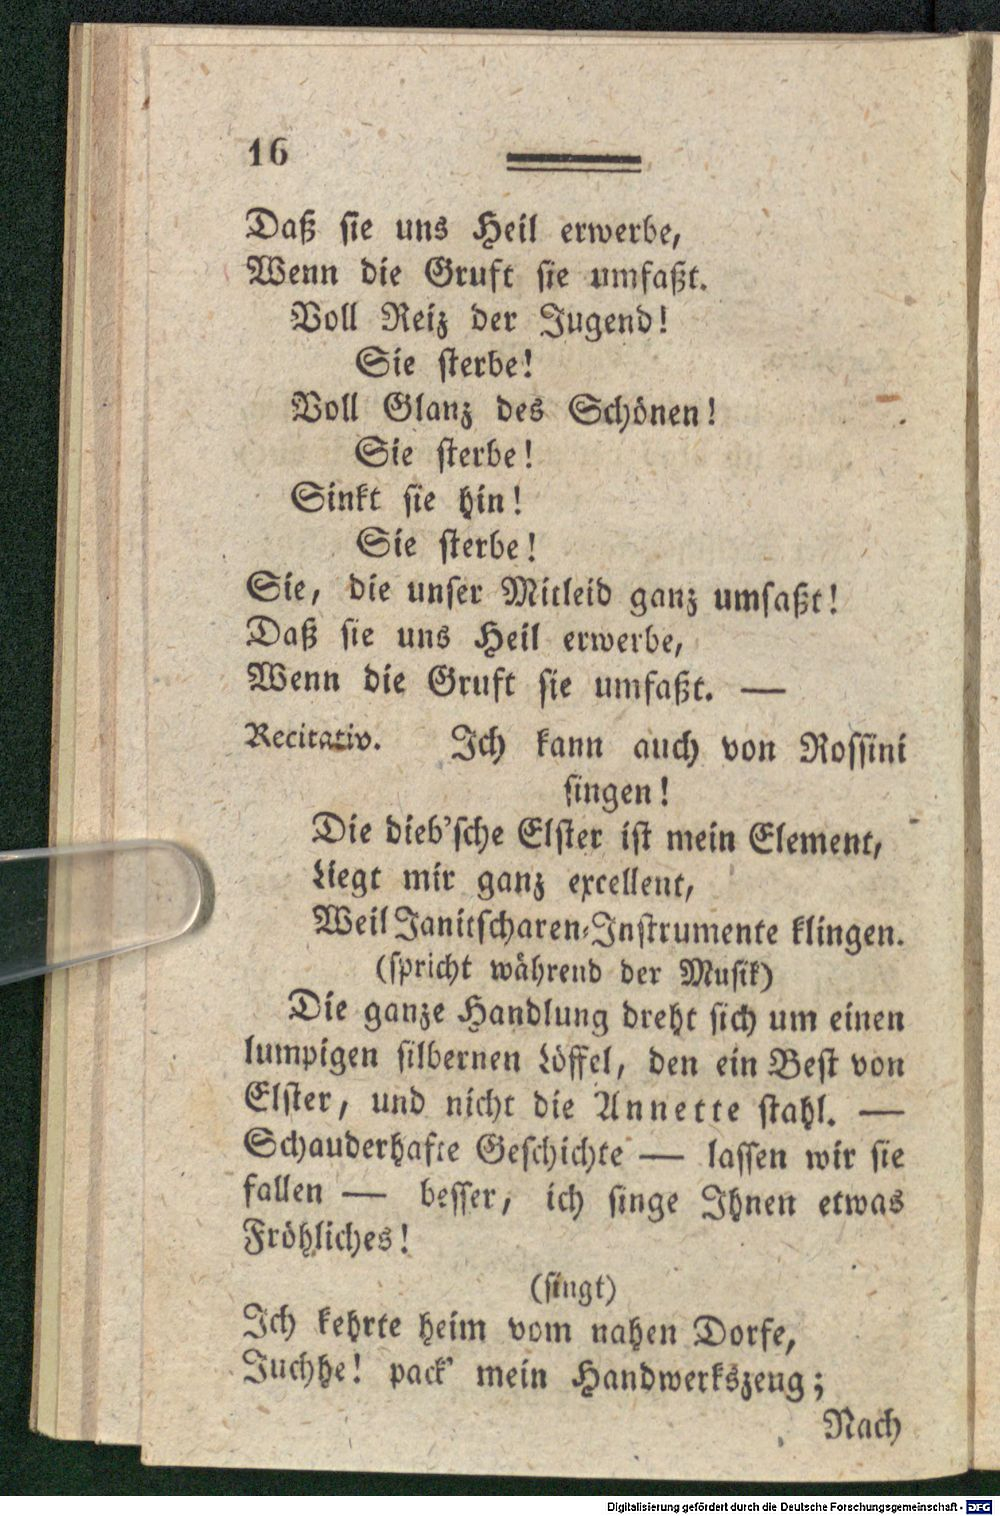 16
Daß sie uns Heil erwerbe,
Wenn die Gruft sie umfaßt.
Voll Reiz der Jugend!
Sie sterbe!
Voll Glanz des Schönen!
Sie sterbe!
Sinkt sie hin!
Sie sterbe!
Sie, die unser Mitleid ganz umfaßt!
Daß sie uns Heil erwerbe,
Wenn die Gruft sie umfaßt. —
Recitativ. Ich kann auch von Rossini
singen!
Die dieb'sche Elster ist mein Element,
Liegt mir ganz excellent,
Weil Janitscharen-Instrumente klingen.
(spricht während der Musik)
Die ganze Handlung dreht sich um einen
lumpigen silbernen Löffel, den ein Best von
Elster, und nicht die Annette stahl. —
Schauderhafte Geschichte — lassen wir sie
fallen — besser, ich singe Ihnen etwas
Fröhliches!
(singt)
Ich kehrte heim vom nahen Dorfe,
Juchhe! pack' mein Handwerkszeug;
Nach
Digitalisierung gefördert durch die Deutsche Forschungsgemeinschaft - DFG